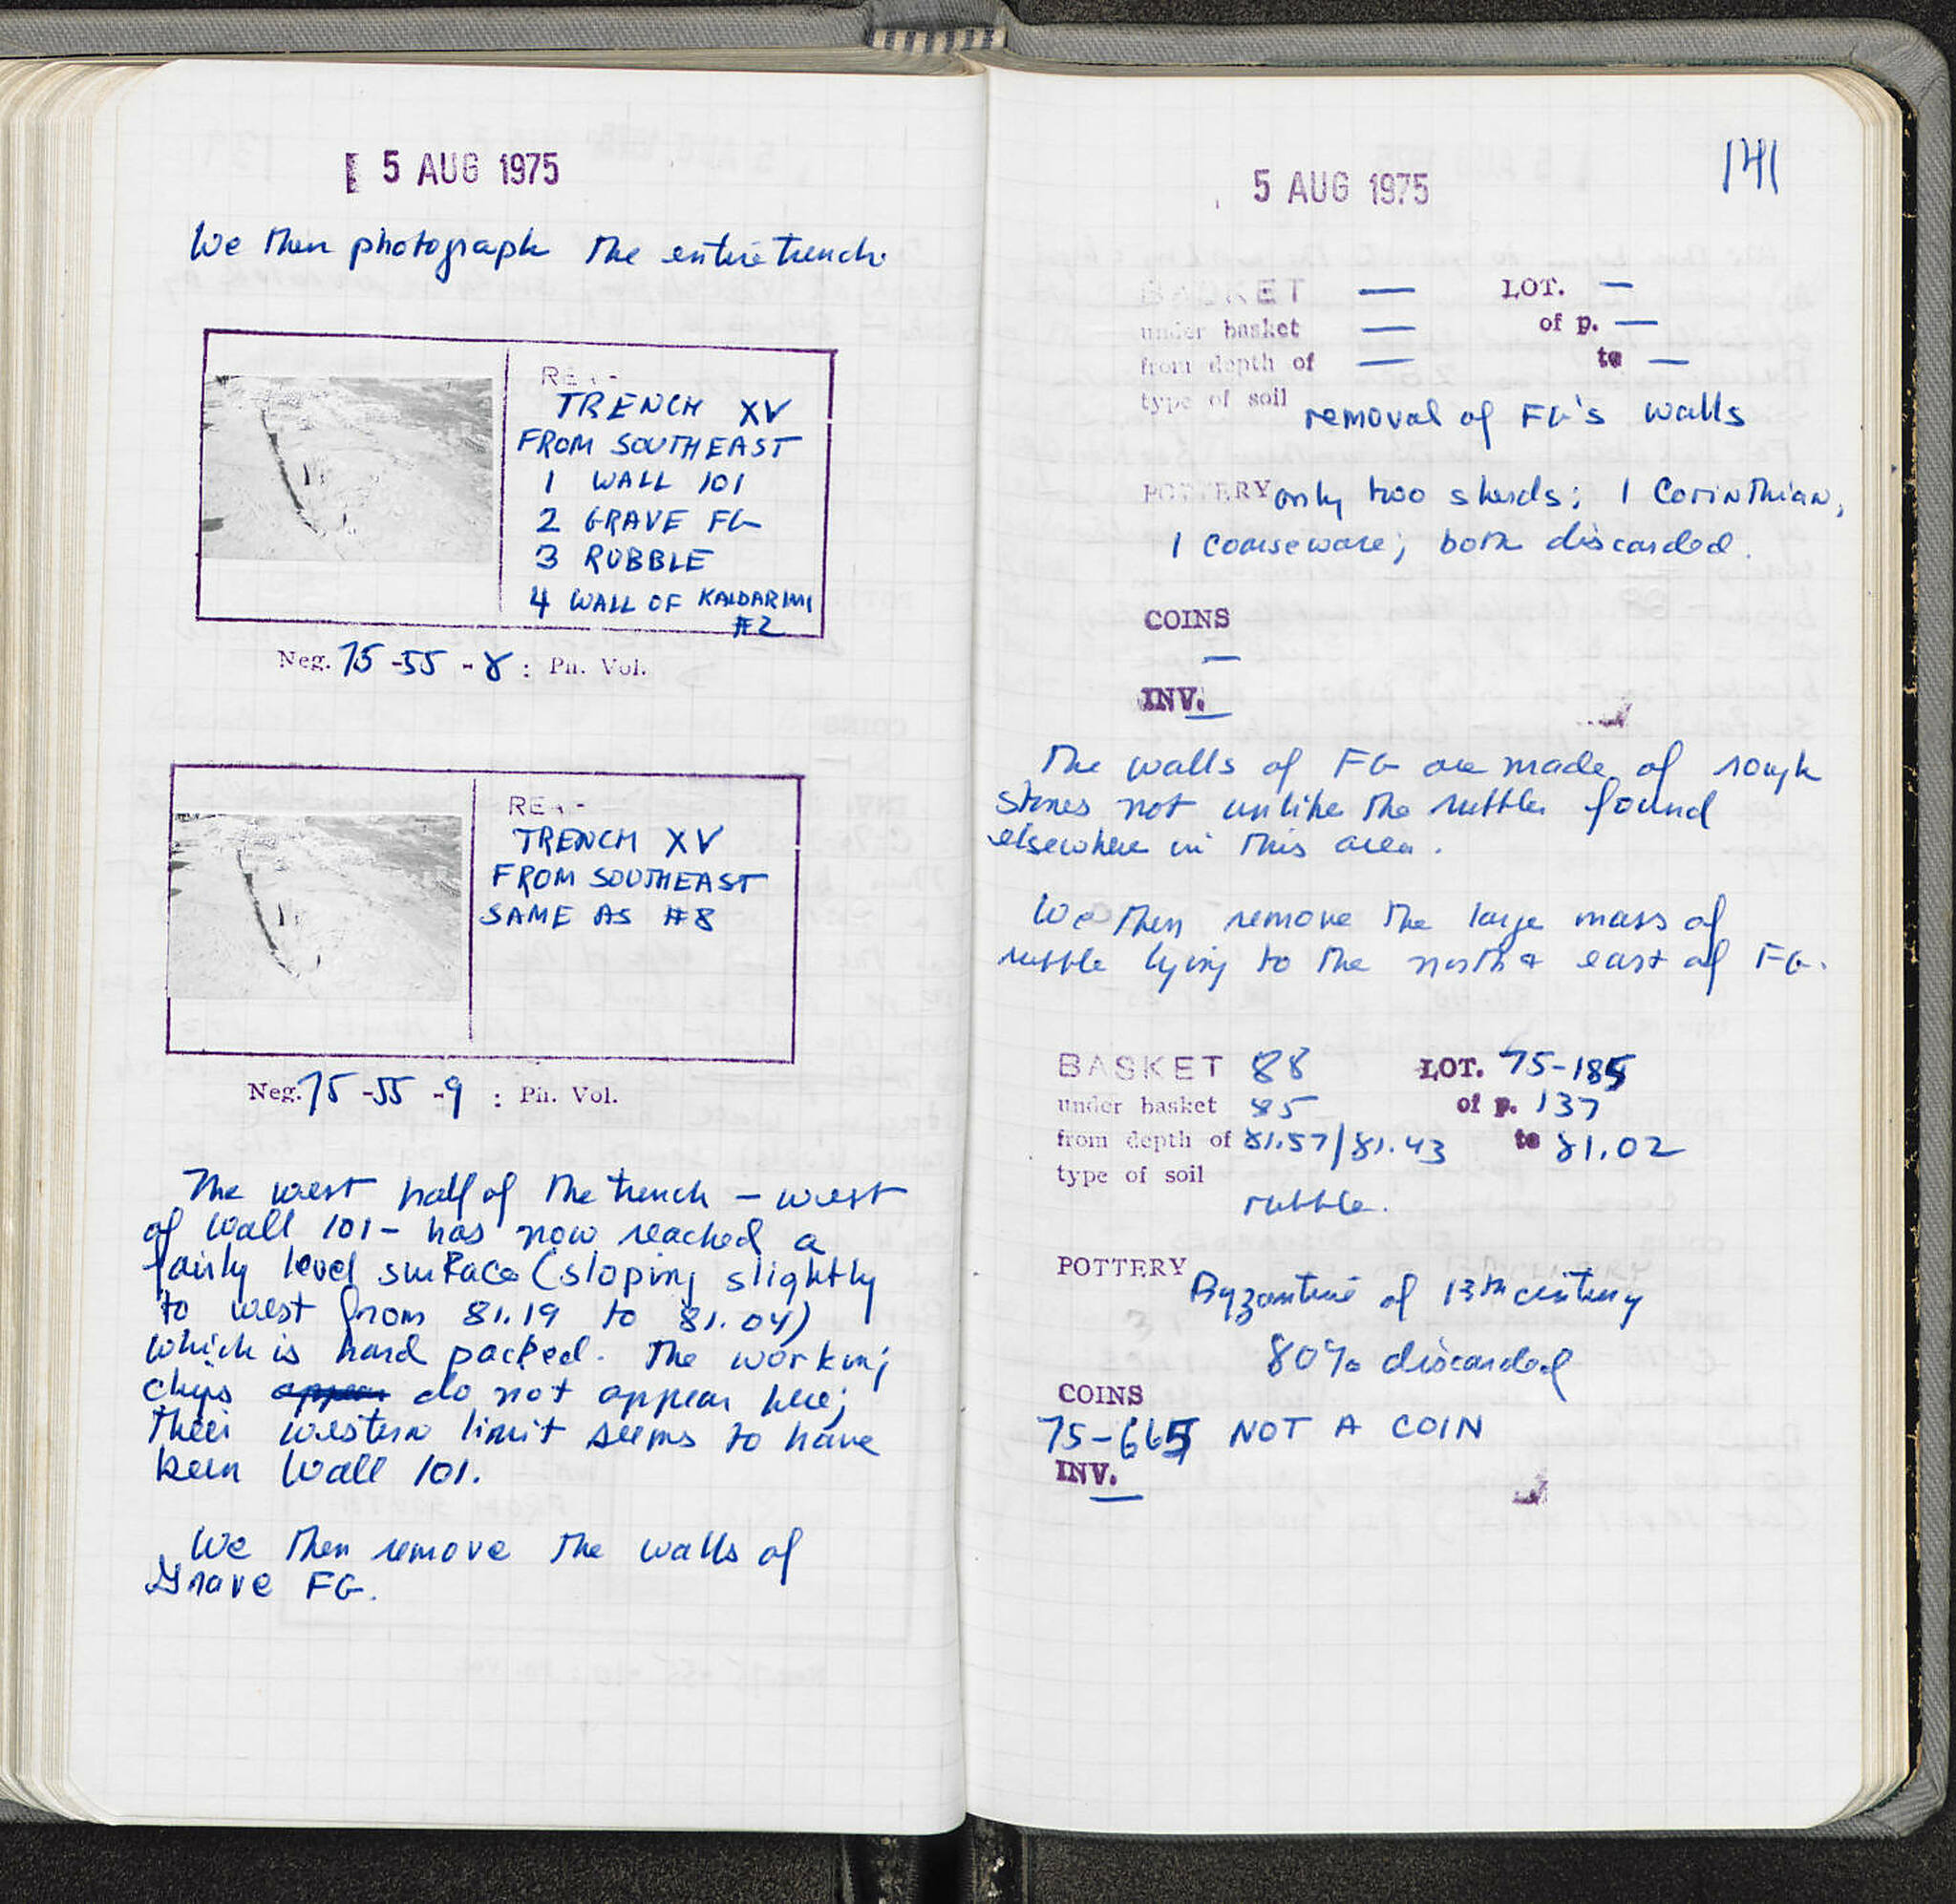 5 AUG 1975
We then photograph the entire trench.
TRENCH XV
FROM SOUTHEAST
1 WALL 101
2 GRAVE FG
3 RUBBLE
4 WALL OF KALDARIMI
#2
Neg. 75-55-8 : Ph. Vol.
TRENCH XV
FROM SOUTHEAST
SAME AS #8
Neg. 75-55-9 : Ph. Vol.
The west half of the trench – west
of Wall 101 – has now reached a
fairly level surface (sloping slightly
to west from 81.19 to 81.04)
which is hard packed. The working
chips do not appear here;
their western limit seems to have
been Wall 101.
We then remove the walls of
Grave FG.
5 AUG 1975
141
BASKET — LOT. —
under basket — of p. —
from depth of — to —
type of soil
removal of FG's walls
POTTERY only two sherds; 1 Corinthian,
1 coarseware; both discarded.
COINS
—
INV. —
The walls of FG are made of rough
stones not unlike the rubble found
elsewhere in this area.
We then remove the large mass of
rubble lying to the north & east of FG.
BASKET 88 LOT. 75-185
under basket 85 of p. 137
from depth of 81.57/81.43 to 81.02
type of soil
rubble.
POTTERY Byzantine of 13th century
80% discarded
COINS
75-665 NOT A COIN
INV.
—